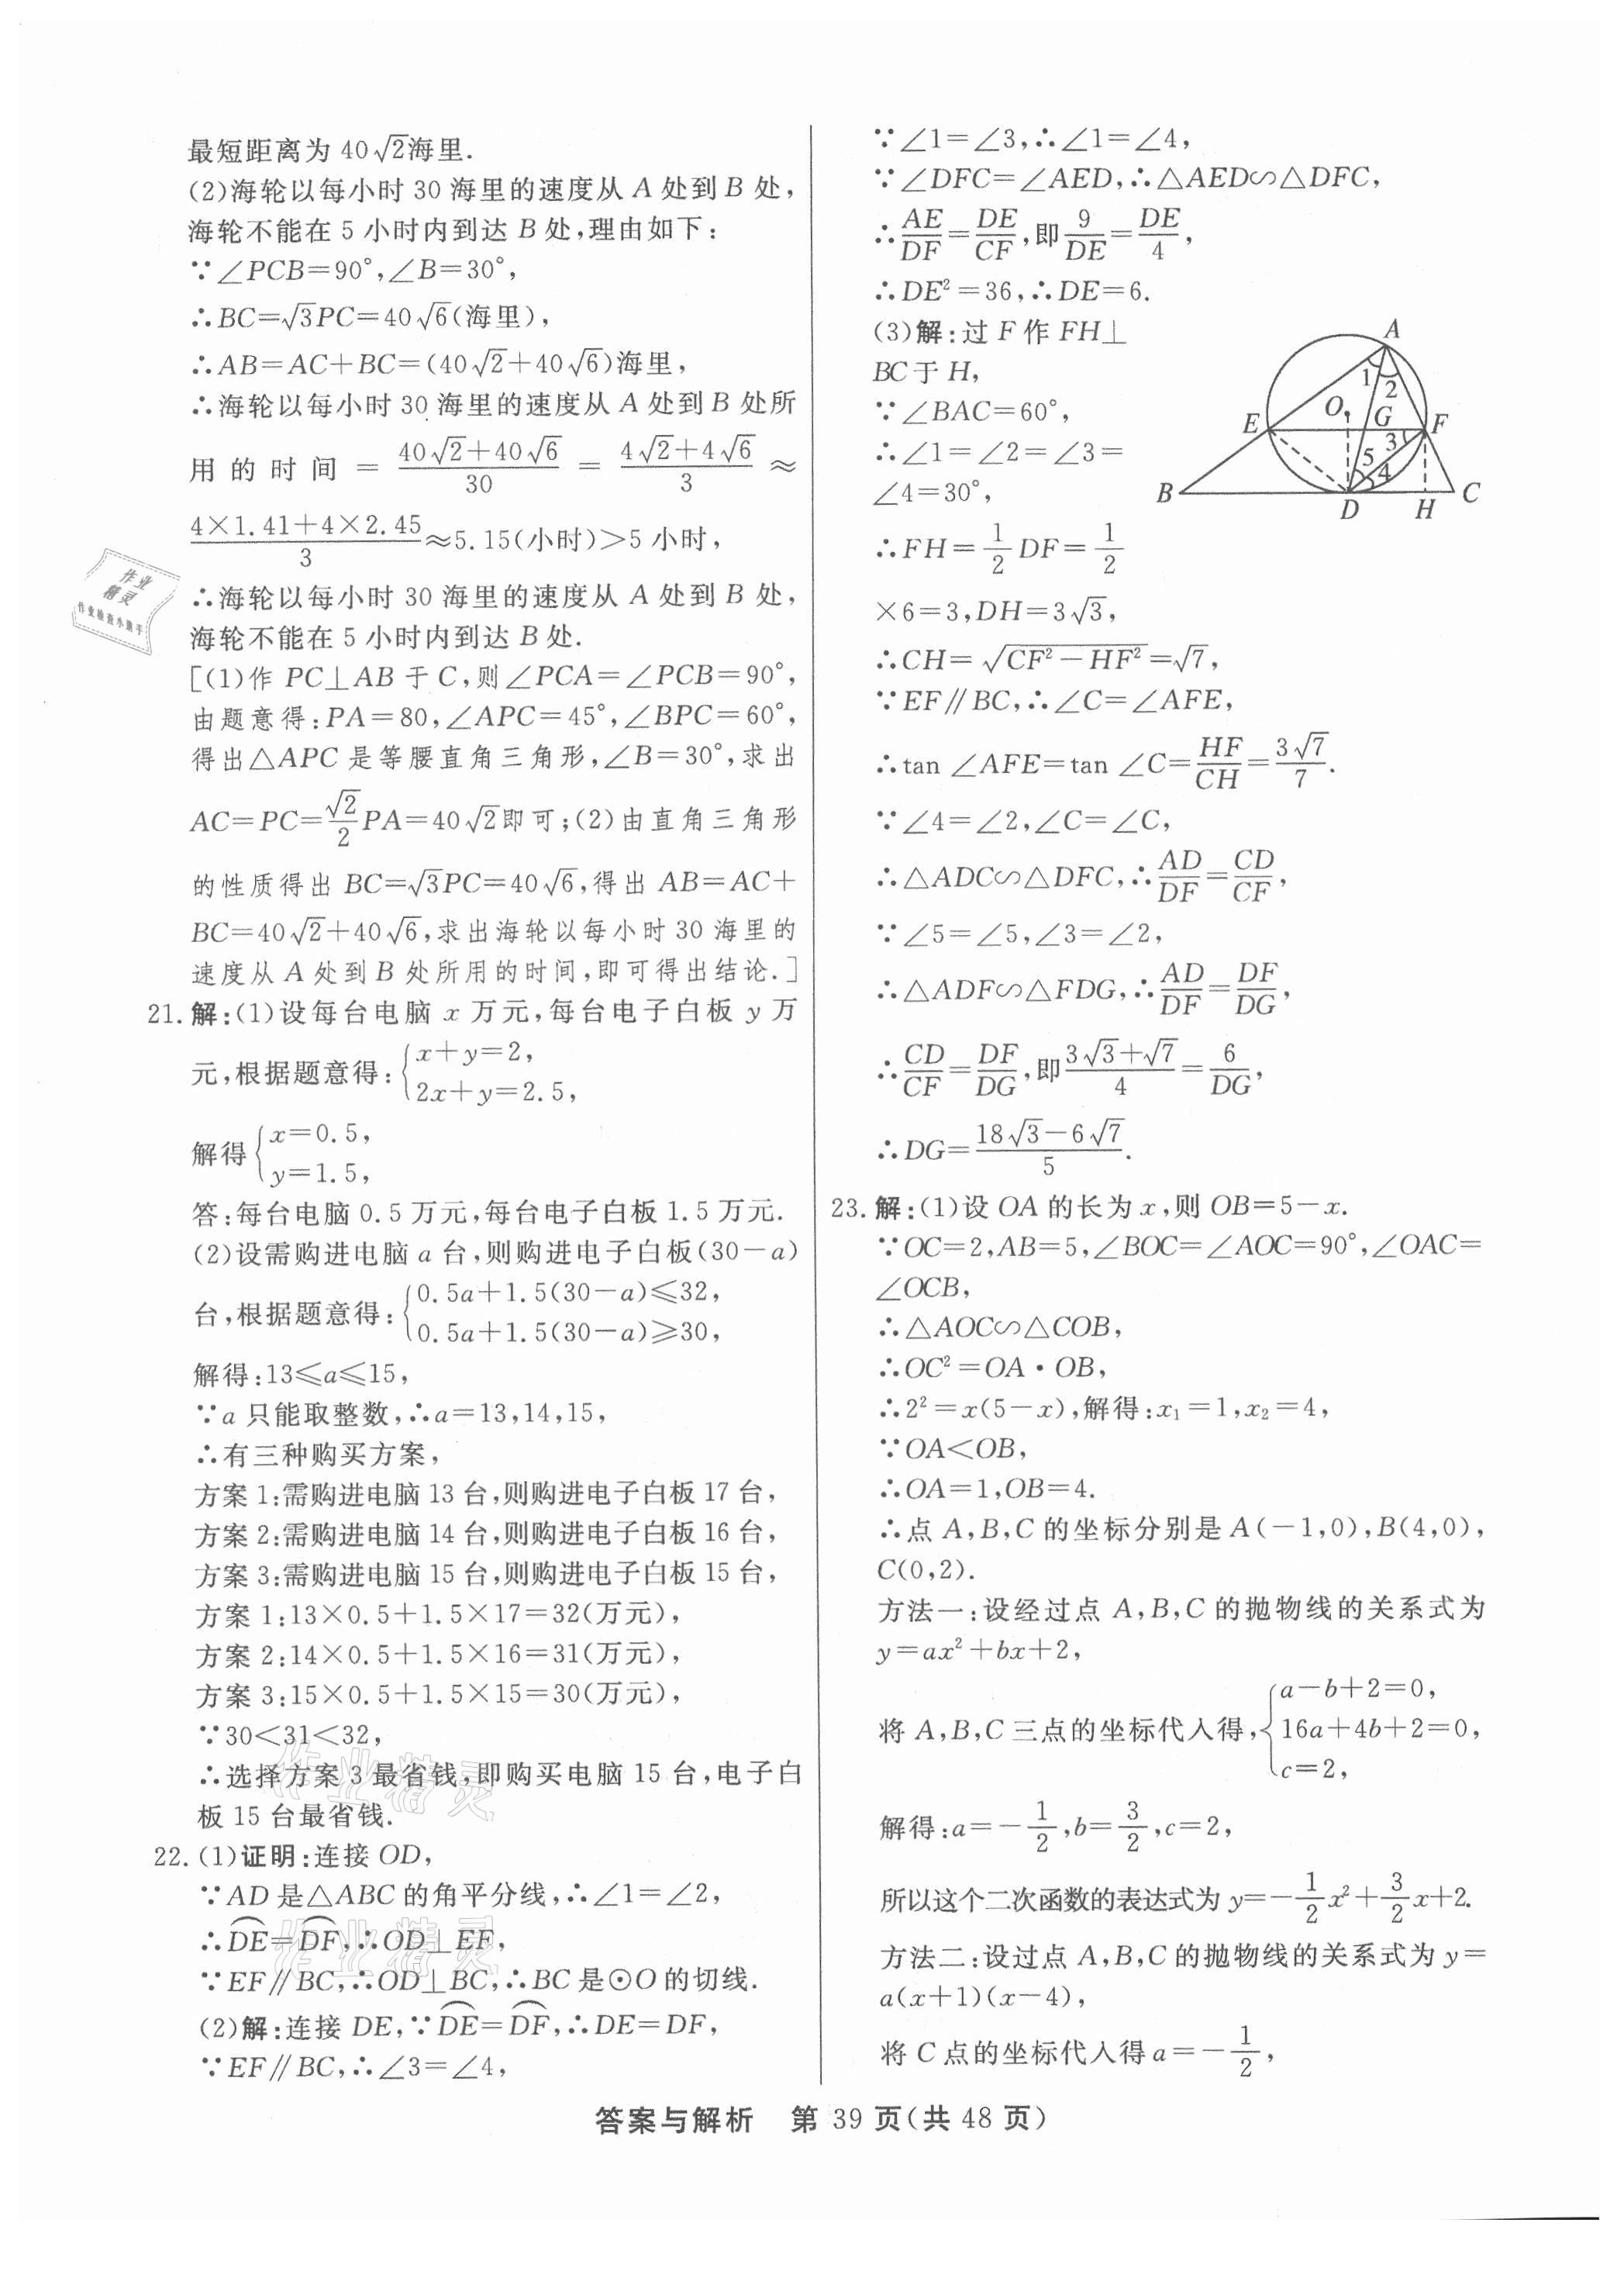 最短距离为 40√2海里.
(2)海轮以每小时 30 海里的速度从 A 处到 B 处,
海轮不能在 5 小时内到达 B 处,理由如下:
∵∠PCB=90°,∠B=30°,
∴BC=√3PC=40√6(海里),
∴AB=AC+BC=(40√2+40√6)海里,
∴海轮以每小时 30 海里的速度从 A 处到 B 处所
用的时间=(40√2+40√6)/30=(4√2+4√6)/3≈
(4×1.41+4×2.45)/3≈5.15(小时)>5 小时,
∴海轮以每小时 30 海里的速度从 A 处到 B 处,
海轮不能在 5 小时内到达 B 处.
[(1)作 PC⊥AB 于 C,则∠PCA=∠PCB=90°,
由题意得:PA=80,∠APC=45°,∠BPC=60°,
得出△APC 是等腰直角三角形,∠B=30°,求出
AC=PC=√2/2PA=40√2即可;(2)由直角三角形
的性质得出 BC=√3PC=40√6,得出 AB=AC+
BC=40√2+40√6,求出海轮以每小时 30 海里的
速度从 A 处到 B 处所用的时间,即可得出结论.]
21.解:(1)设每台电脑 x 万元,每台电子白板 y 万
元,根据题意得:{x+y=2,
2x+y=2.5,
解得{x=0.5,
y=1.5,
答:每台电脑 0.5 万元,每台电子白板 1.5 万元.
(2)设需购进电脑 a 台,则购进电子白板(30-a)
台,根据题意得:{0.5a+1.5(30-a)≤32,
0.5a+1.5(30-a)≥30,
解得:13≤a≤15,
∵a 只能取整数,∴a=13,14,15,
∴有三种购买方案,
方案 1:需购进电脑 13 台,则购进电子白板 17 台,
方案 2:需购进电脑 14 台,则购进电子白板 16 台,
方案 3:需购进电脑 15 台,则购进电子白板 15 台,
方案 1:13×0.5+1.5×17=32(万元),
方案 2:14×0.5+1.5×16=31(万元),
方案 3:15×0.5+1.5×15=30(万元),
∵30<31<32,
∴选择方案 3 最省钱,即购买电脑 15 台,电子白
板 15 台最省钱.
22.(1)证明:连接 OD,
∵AD 是△ABC 的角平分线,∴∠1=∠2,
∴D͡E=D͡F,∴OD⊥EF,
∵EF∥BC,∴OD⊥BC,∴BC 是⊙O 的切线.
(2)解:连接 DE,∵D͡E=D͡F,∴DE=DF,
∵EF∥BC,∴∠3=∠4,
∵∠1=∠3,∴∠1=∠4,
∵∠DFC=∠AED,∴△AED∽△DFC,
∴AE/DF=DE/CF,即9/DE=DE/4,
∴DE²=36,∴DE=6.
(3)解:过 F 作 FH⊥
BC于 H,
∵∠BAC=60°,
∴∠1=∠2=∠3=
∠4=30°,
∴FH=1/2 DF=1/2
×6=3,DH=3√3,
A
1
2
E
O
G
F
3
5
4
B
D
H
C
∴CH=√(CF²-HF²)=√7,
∵EF∥BC,∴∠C=∠AFE,
∴tan ∠AFE=tan ∠C=HF/CH=3√7/7.
∵∠4=∠2,∠C=∠C,
∴△ADC∽△DFC,∴AD/DF=CD/CF,
∵∠5=∠5,∠3=∠2,
∴△ADF∽△FDG,∴AD/DF=DF/DG,
∴CD/CF=DF/DG,即(3√3+√7)/4=6/DG,
∴DG=(18√3-6√7)/5.
23.解:(1)设 OA 的长为 x,则 OB=5-x.
∵OC=2,AB=5,∠BOC=∠AOC=90°,∠OAC=
∠OCB,
∴△AOC∽△COB,
∴OC²=OA·OB,
∴2²=x(5-x),解得:x₁=1,x₂=4,
∵OA<OB,
∴OA=1,OB=4.
∴点 A,B,C 的坐标分别是 A(-1,0),B(4,0),
C(0,2).
方法一:设经过点 A,B,C 的抛物线的关系式为
y=ax²+bx+2,
将 A,B,C 三点的坐标代入得,{a-b+2=0,
16a+4b+2=0,
c=2,
解得:a=-1/2,b=3/2,c=2,
所以这个二次函数的表达式为 y=-1/2x²+3/2x+2.
方法二:设过点 A,B,C 的抛物线的关系式为 y=
a(x+1)(x-4),
将 C 点的坐标代入得 a=-1/2,
答案与解析 第 39 页(共 48 页)
作业
精灵
作业检查小助手
作业精灵
作业精灵